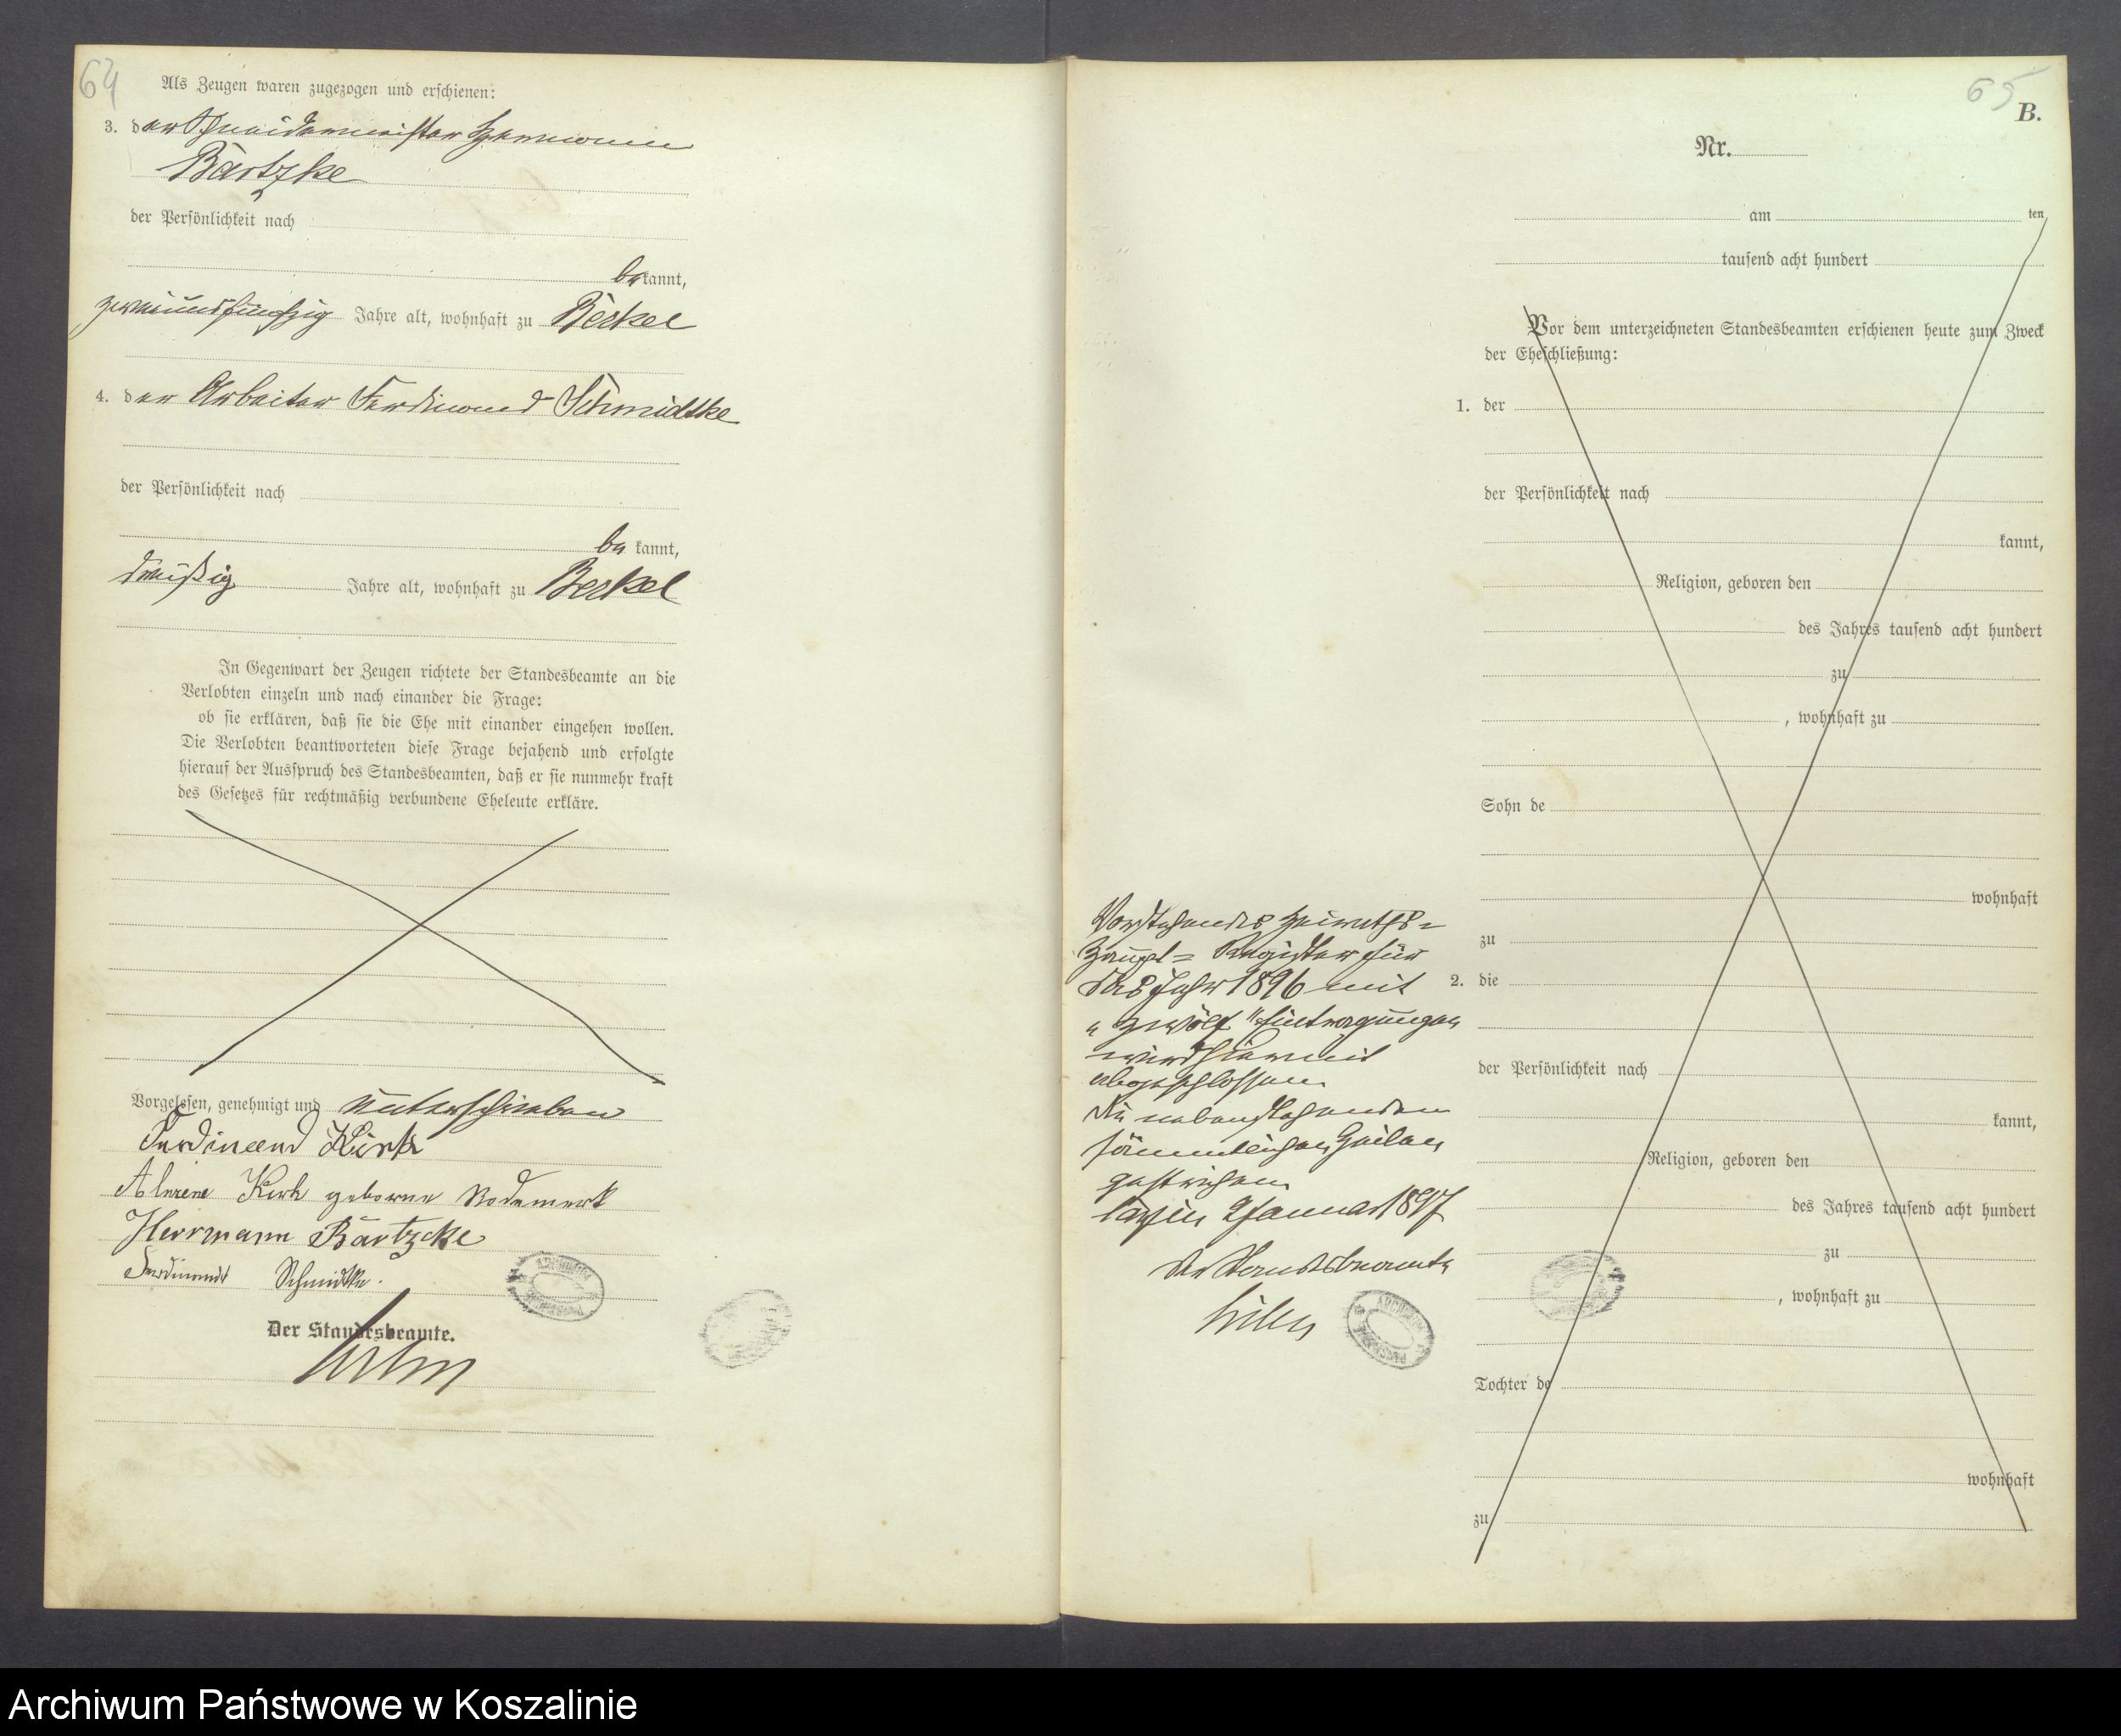 64
Als Zeugen waren zugezogen und erschienen:
3. der Schneidermeister Hermann
Bartzke
der Persönlichkeit nach
bekannt,
zweiundfünfzig Jahre alt, wohnhaft zu Beskel
4. der Arbeiter Ferdinand Schmidtke
der Persönlichkeit nach
be kannt,
dreißig Jahre alt, wohnhaft zu Beskel
In Gegenwart der Zeugen richtete der Standesbeamte an die
Verlobten einzeln und nach einander die Frage:
ob sie erklären, daß sie die Ehe mit einander eingehen wollen.
Die Verlobten beantworteten diese Frage bejahend und erfolgte
hierauf der Ausspruch des Standesbeamten, daß er sie nunmehr kraft
des Gesetzes für rechtmäßig verbundene Eheleute erkläre.
Vorgelesen, genehmigt und unterschrieben
Ferdinand Kirk
Kirk geborene Rodemerk
Herrmann Bartzcke
Ferdinandt Schmidtke.
Der Standesbeamte.
65
B.
Nr.
am ten
tausend acht hundert
Vor dem unterzeichneten Standesbeamten erschienen heute zum Zweck
der Eheschließung:
1. der
der Persönlichkeit nach
kannt,
Religion, geboren den
des Jahres tausend acht hundert
zu
, wohnhaft zu
Sohn de
wohnhaft
zu
2. die
der Persönlichkeit nach
kannt,
Religion, geboren den
des Jahres tausend acht hundert
zu
, wohnhaft zu
Tochter de
wohnhaft
zu
Vorstehendes Heiraths-
Haupt-Register für
das Jahr 1896 mit
"zwölf" Eintragungen
wird hiermit
abgeschlossen.
Die nebenstehenden
sämmtlichen Zeilen
gestrichen.
2 Januar 1897
Der Standesbeamte
Archiwum Państwowe w Koszalinie